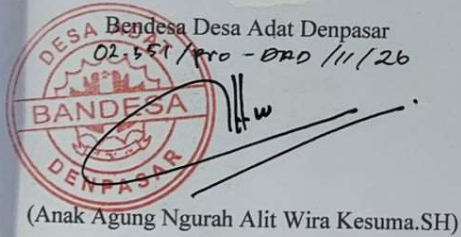 Bendesa Desa Adat Denpasar
02.551/Pro - DAD /11/26
DESA ADAT
BANDESA
DENPASAR
(Anak Agung Ngurah Alit Wira Kesuma.SH)